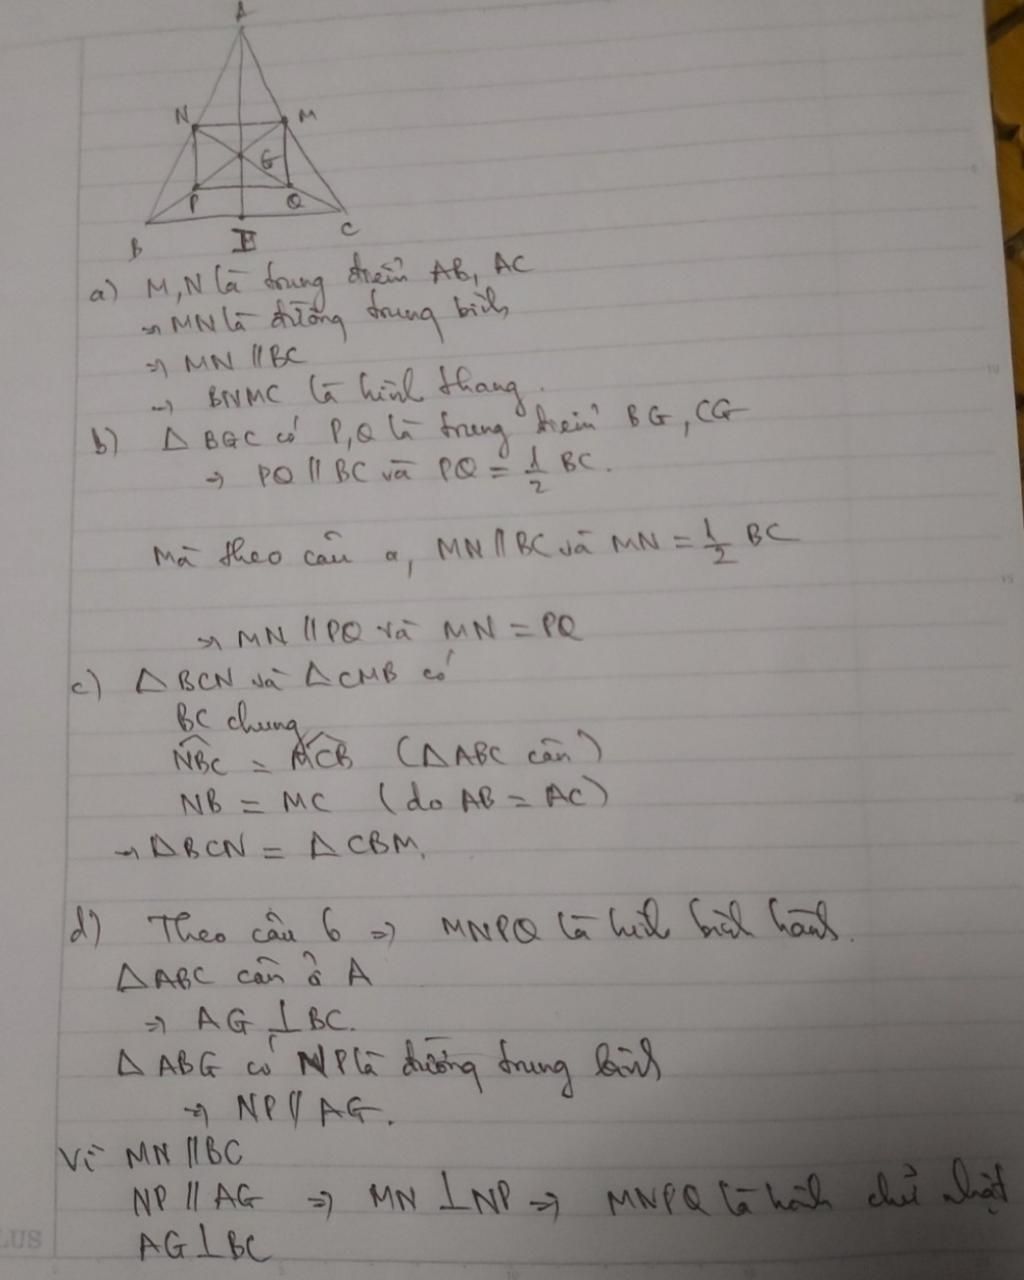 A
N M
G
P Q
B E C
a) M, N là trung điểm AB, AC
→ MN là đường trung bình
=> MN // BC
→ BNMC là hình thang.
b) △ BGC có P, Q là trung điểm BG, CG
=> PQ // BC và PQ = 1/2 BC.
Mà theo câu a, MN // BC và MN = 1/2 BC
→ MN // PQ và MN = PQ
c) △ BCN và △ CMB có
BC chung
NBC = MCB (△ ABC cân)
NB = MC (do AB = AC)
→ △BCN = △CBM.
d) Theo câu b => MNPQ là hình bình hành.
△ABC cân ở A
=> AG ⊥ BC.
△ ABG có NP là đường trung bình
=> NP // AG.
Vì MN // BC
NP // AG => MN ⊥ NP => MNPQ là hình chữ nhật
AG ⊥ BC
LUS